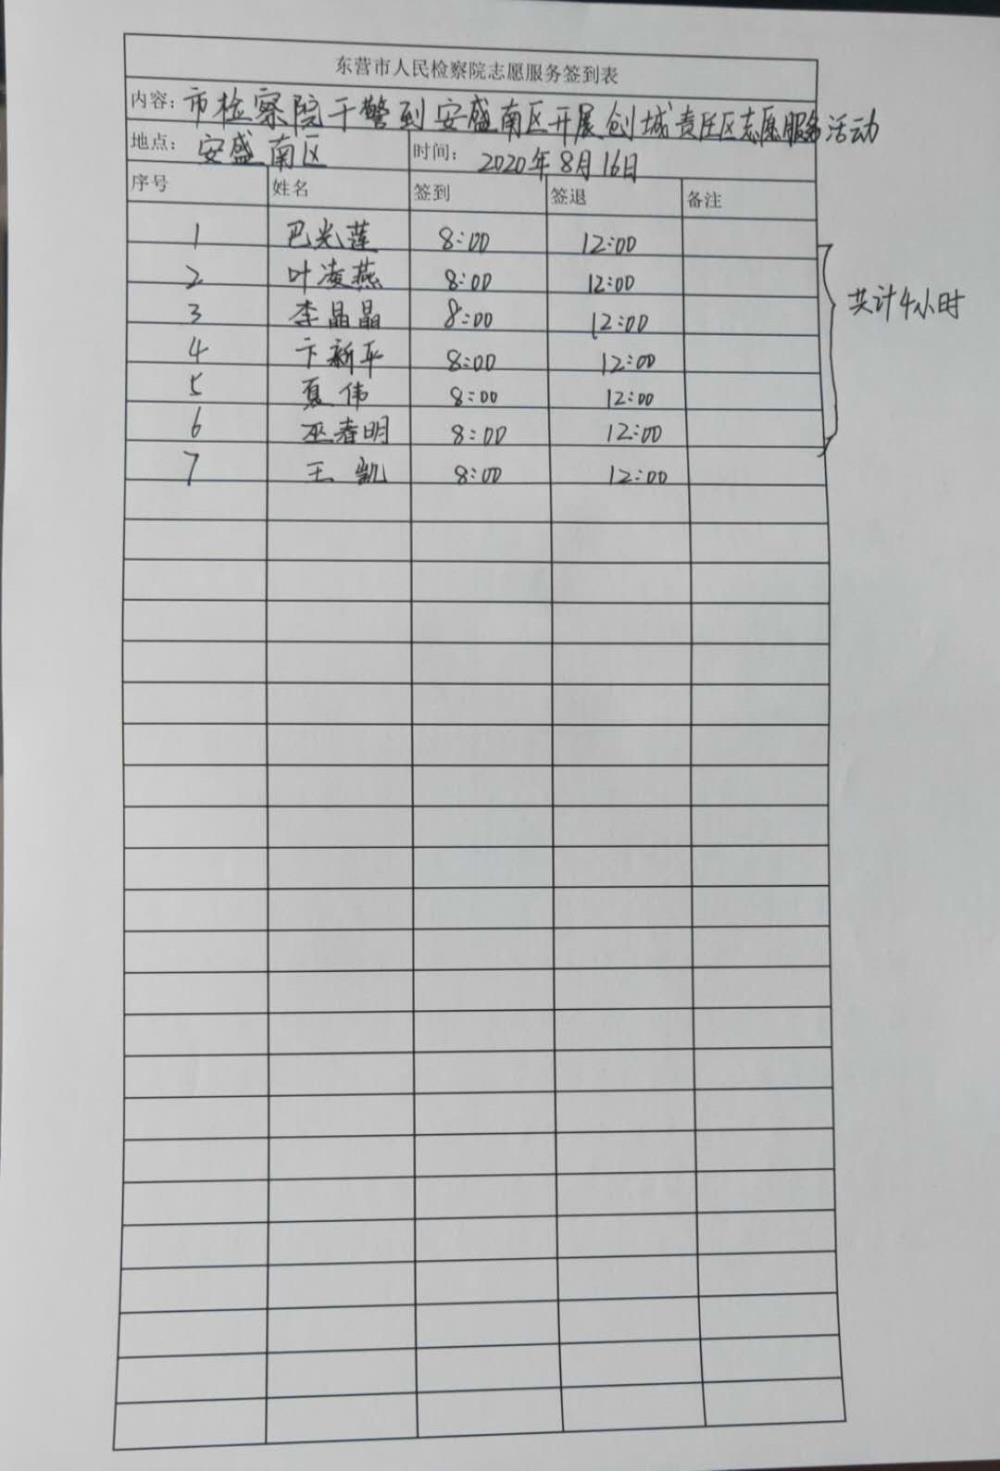 东营市人民检察院志愿服务签到表
内容：市检察院干警到安盛南区开展创城责任区志愿服务活动
地点：安盛南区 时间：2020年8月16日
序号 姓名 签到 签退 备注
1 巴光莲 8:00 12:00
2 叶凌燕 8:00 12:00
3 李晶晶 8:00 12:00
4 卞新平 8:00 12:00
5 夏伟 8:00 12:00
6 巫春明 8:00 12:00
7 王凯 8:00 12:00
共计4小时